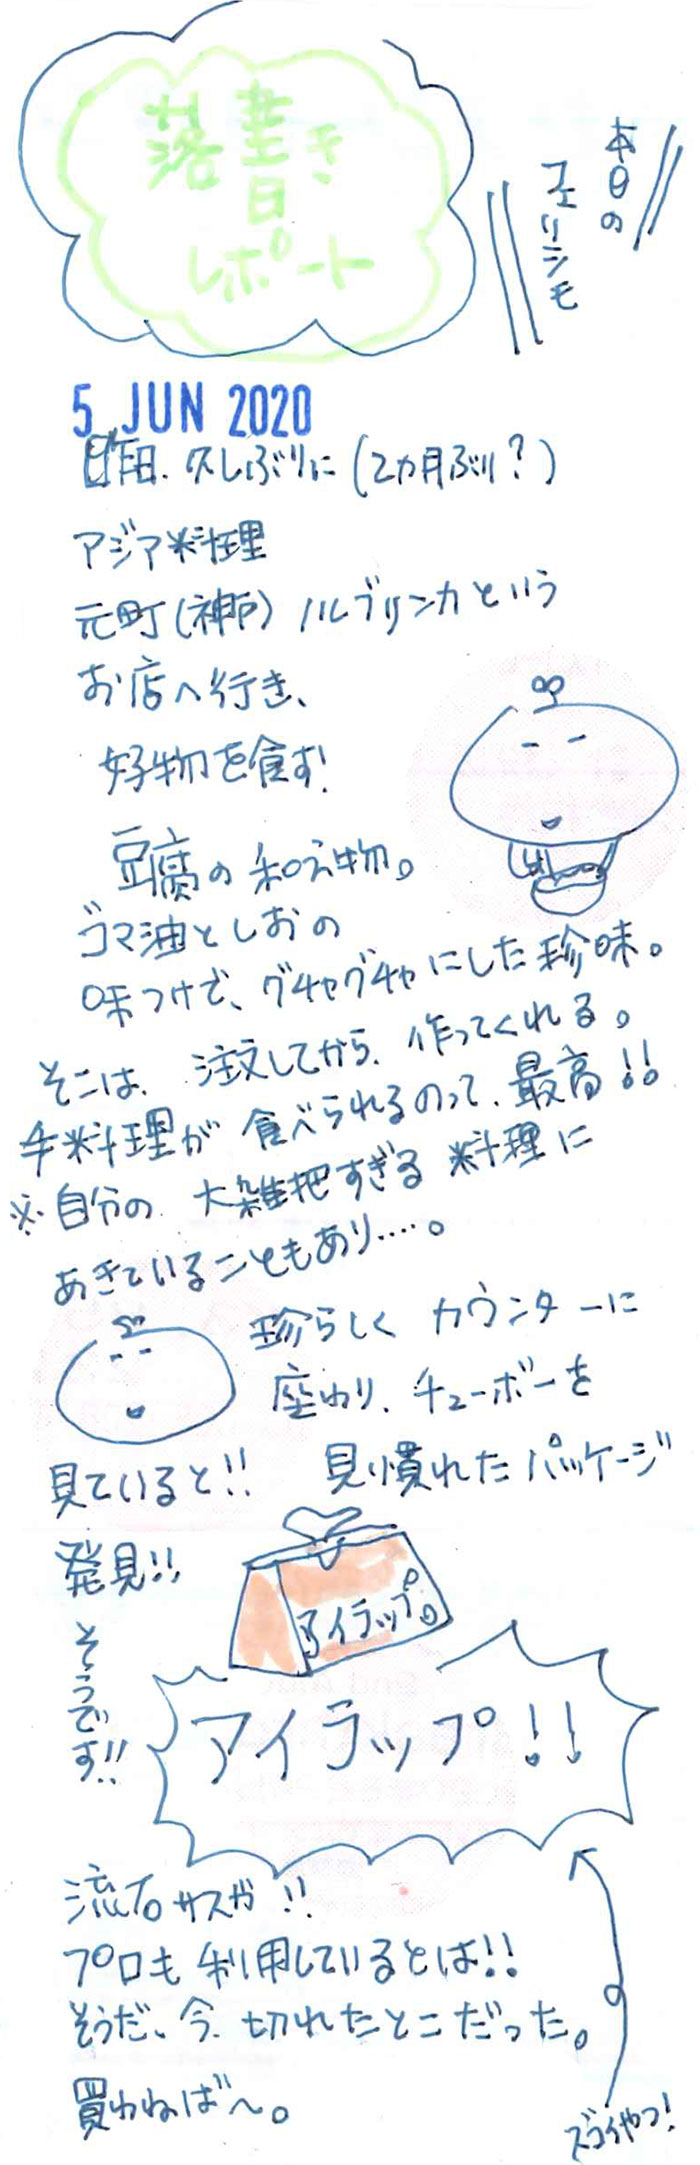 本日の
フェリシモ
落書き
レポート
5 JUN 2020
昨日、久しぶりに(2カ月ぶり?)
アジア料理
元町(神戸)ハルブリンカという
お店へ行き、
好物を食す!
豆腐の和え物。
ゴマ油としおの
味つけで、グチャグチャにした珍味。
そこは、注文してから、作ってくれる。
手料理が食べられるのって、最高!!
※自分の大雑把すぎる料理に
あきていることもあり・・・・。
珍らしくカウンターに
座わり、チューボーを
見ていると!! 見慣れたパッケージ
発見!!
アイラップ。
そうです!!
アイラップ!!
流石サスガ!!
プロも利用しているとは!!
そうだ、今、切れたとこだった。
買わねば〜。
ズゴイやつ!